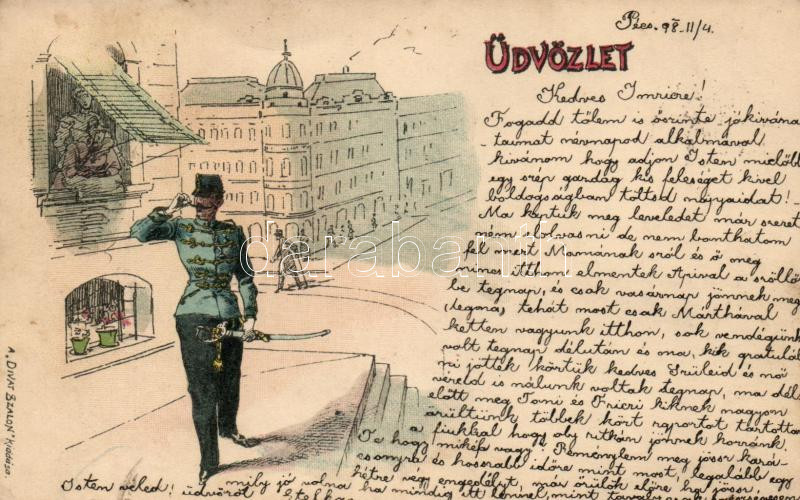 Pécs. 98. 11/4.
ÜDVÖZLET
Kedves Imricze!
Fogadd tőlem is őszinte jókivána-
taimat névnapod alkalmával
kivánom hogy adjon Isten mielőbb
egy szép gazdag kis feleséget kivel
boldogságban töltsd napjaidat! -
Ma kaptuk meg leveledet már szeret
ném elolvasni de nem bonthatom
fel mert Mamának szól és ő még
nincs itthon elmentek Apival a szőllő
be tegnap, és csak vasárnap jönnek meg
tehát most csak Márthával
ketten vagyunk itthon, sok vendégünk
volt tegnap délután és ma, kik gratulál
ni jöttek körtük kedves Szüleid és nő
véreid is nálunk voltak tegnap, ma dél
előtt meg Toni és Friczi kiknek nagyon
örültünk többek közt raportot tartottam
a fiukkal hogy oly ritkán jönnek hozzánk.
Te hogy mikép vagy? Reménylem meg jössz kará-
csonyra és hosszabb időre mint most, legalább egy
hétre végy engedélyt, már örülök előre ha jössz,
mily jó volna ha mindig itt lennél, mint
Isten véled! üdvözöl
A „DIVAT SZALON” kiadása.
darabanth